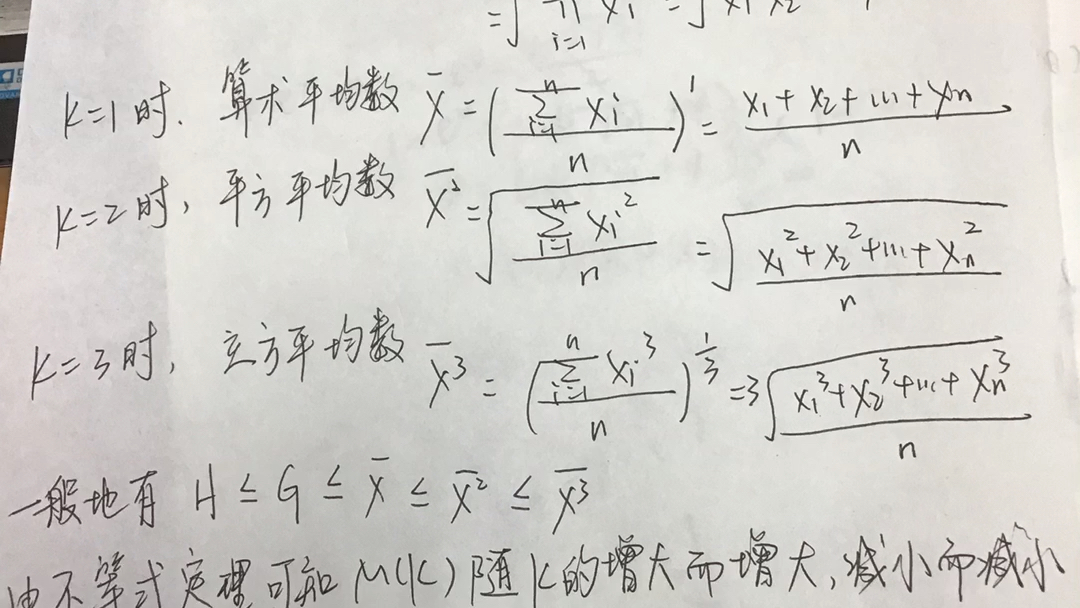 = √ ∏ i=1 xi = √ x1 x2
k=1时. 算术平均数 x̄ = ( ∑ i=1 n xi / n )^1 = (x1 + x2 + ... + xn) / n
k=2时, 平方平均数 x̄² = √( ∑ i=1 n xi² / n ) = √( (x1² + x2² + ... + xn²) / n )
k=3时, 立方平均数 x̄³ = ( ∑ i=1 n xi³ / n )^(1/3) = ³√( (x1³ + x2³ + ... + xn³) / n )
一般地有 H ≤ G ≤ x̄ ≤ x̄² ≤ x̄³
由不等式定理可知 M(k) 随 k 的增大而增大, 减小而减小